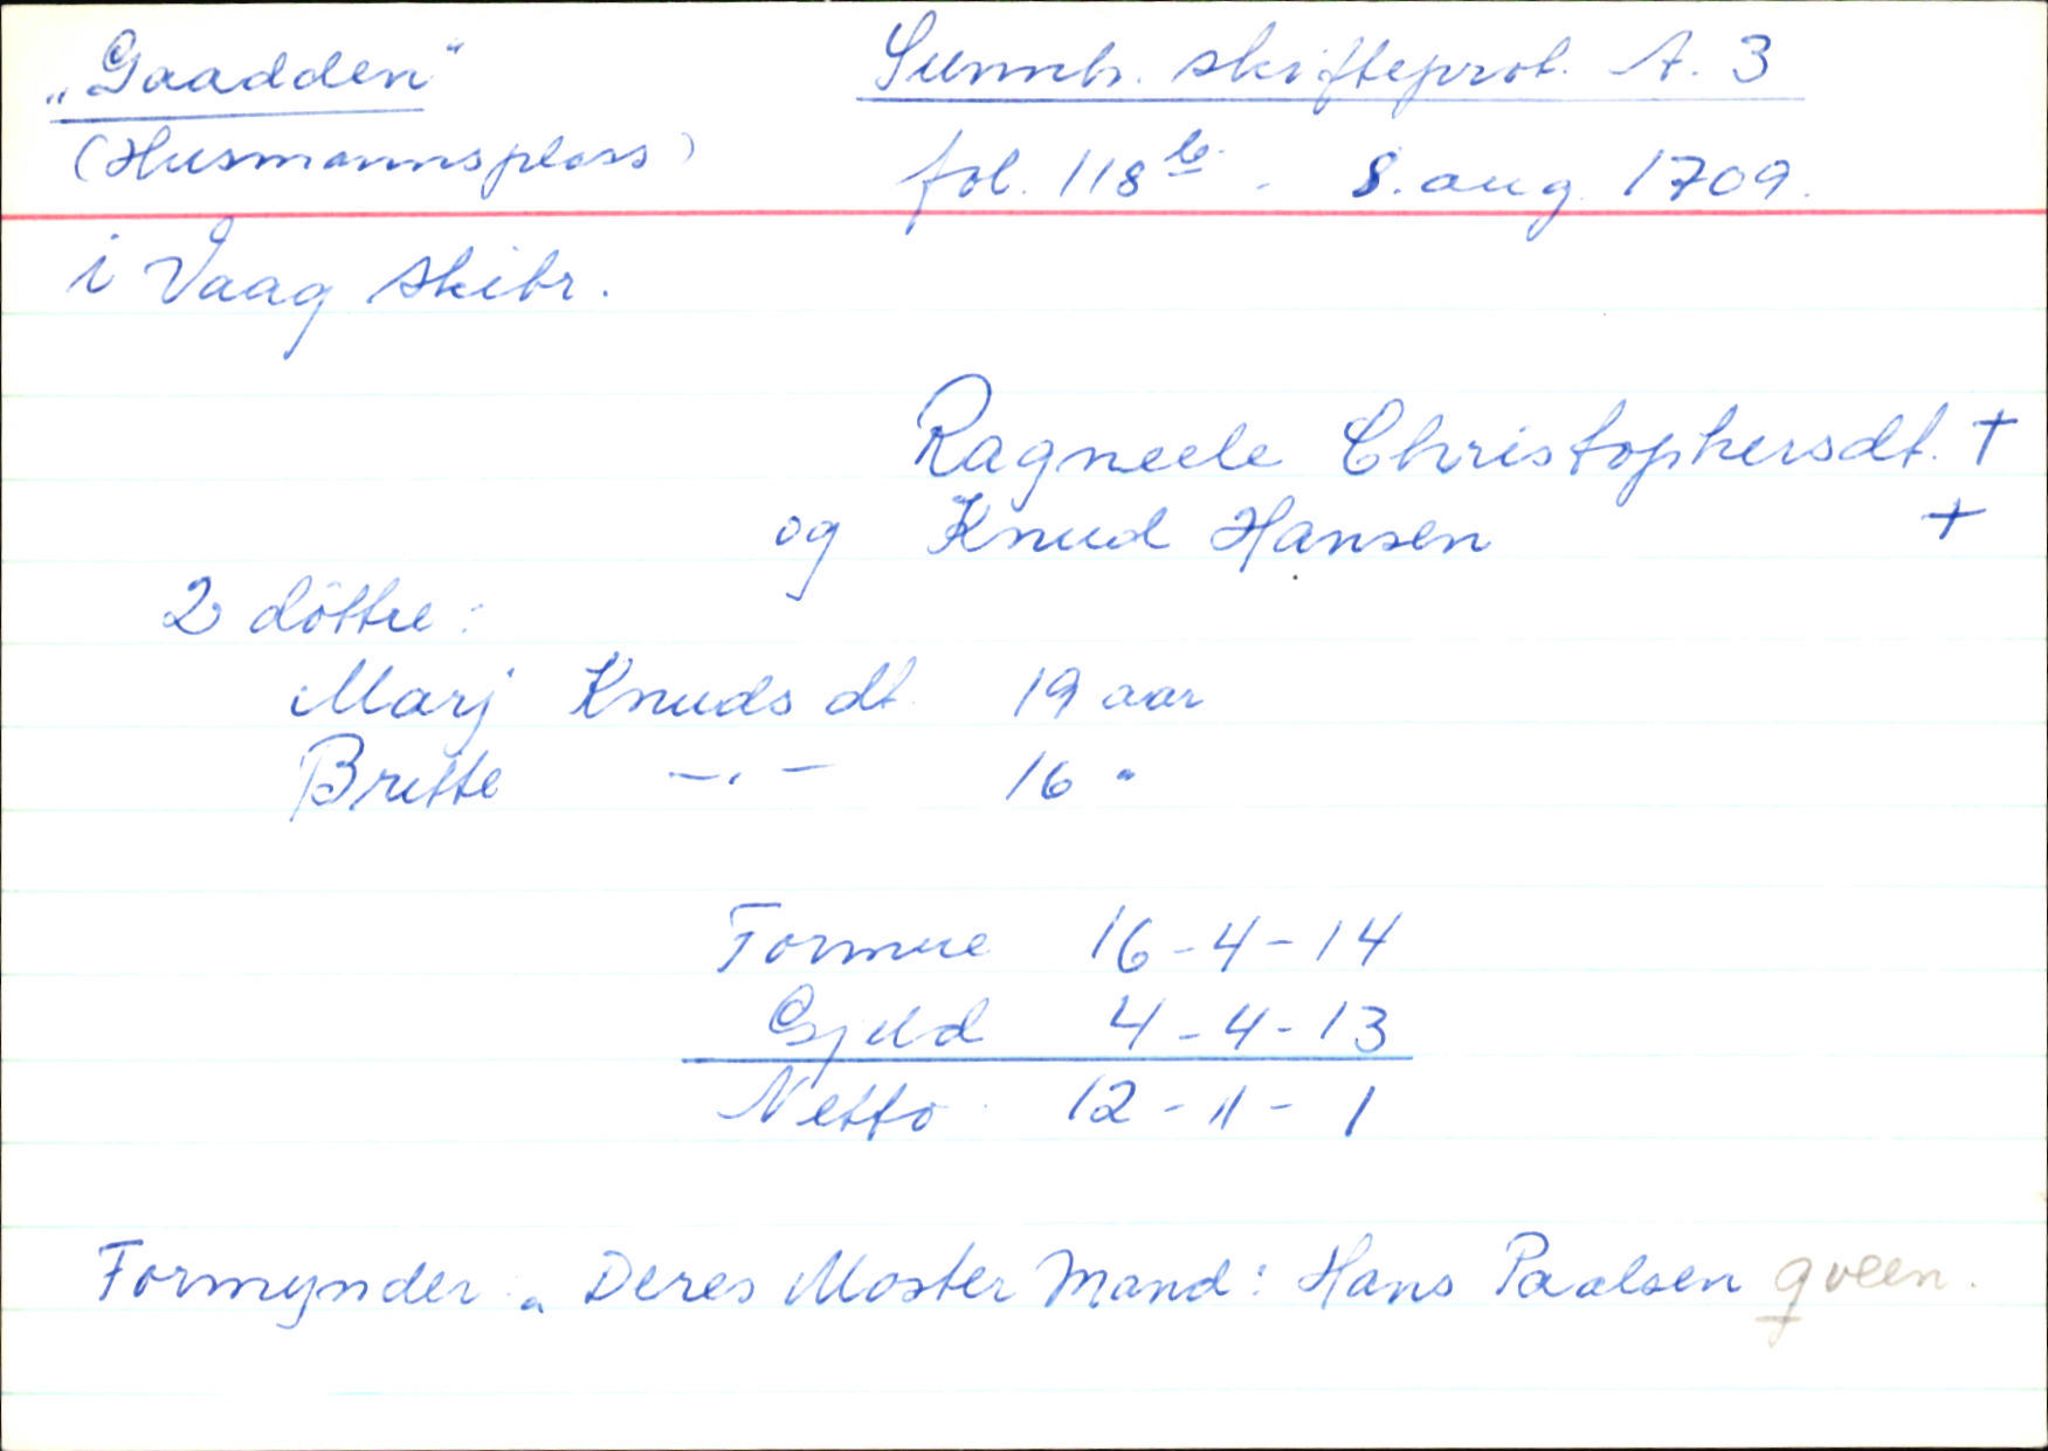 „Gaadden“ Sunnh. skifteprot. A. 3
(Husmannsplass) fol. 118 b. - 8. aug. 1709.
i Vaag skibr.
Ragneele Christophersdt. +
og Knud Hansen +
2 döttre:
Marj Knudsdt. 19 aar
Britte -„- 16 "
Formue 16-4-14
Gjeld 4-4-13
Netto 12-"-1
Formynder „ Deres Moster Mand: Hans Paalsen qveen.